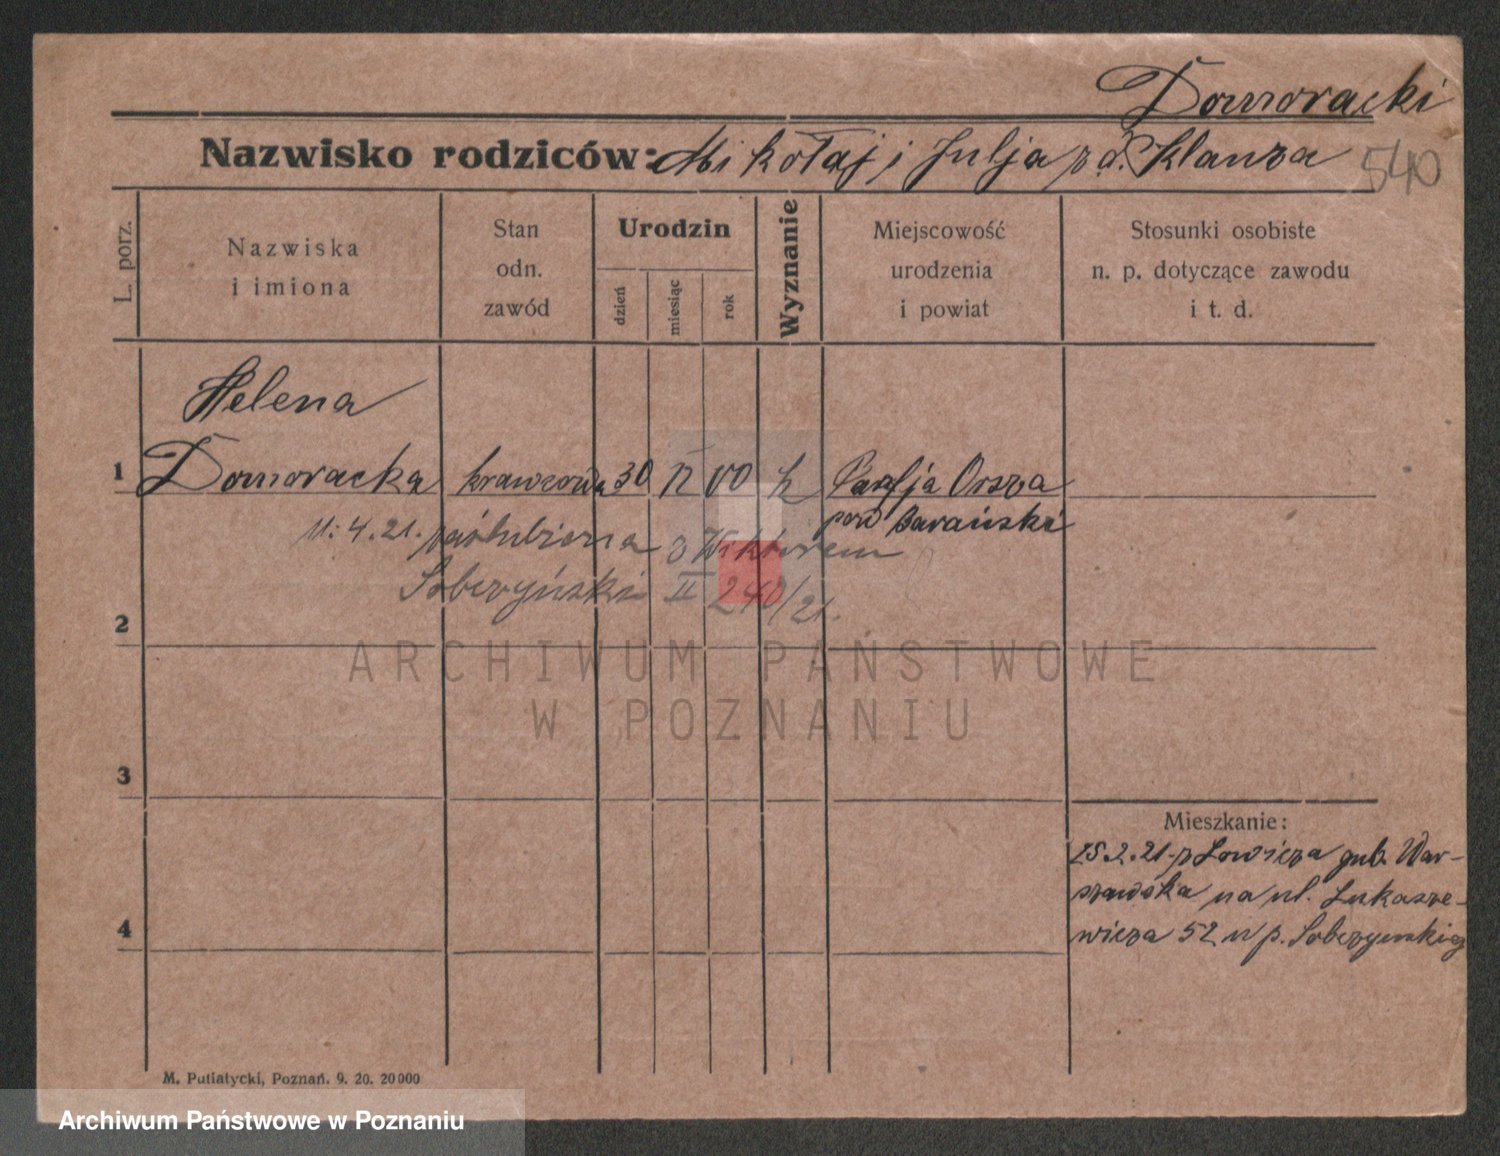 Domoracki
Nazwisko rodziców: Mikołaj i Julja z d. Klanza 540
L. porz.
Nazwiska i imiona
Stan odn. zawód
Urodzin
dzień
miesiąc
rok
Wyznanie
Miejscowość urodzenia i powiat
Stosunki osobiste n. p. dotyczące zawodu i t. d.
Helena
1 Domoracka krawcowa 30 00 k Orsza
pow
11.4.21. zaślubiona z Wiktorem
Sobczyński II 240/21.
2
ARCHIWUM PAŃSTWOWE
W POZNANIU
3
Mieszkanie:
15.2.21. z Łowicza gub. War-
szawska na ul. Łukasze-
4 wicza 52 u p. Sobczyńskiej
M. Putiatycki, Poznań. 9. 20. 20000
Archiwum Państwowe w Poznaniu